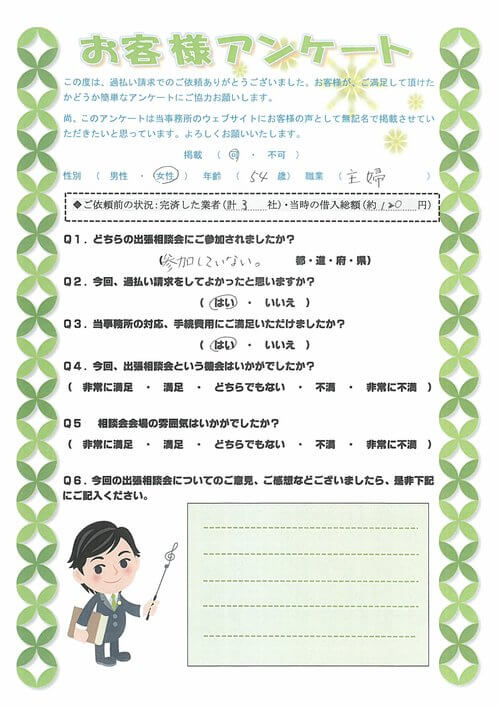 お客様アンケート
この度は、過払い請求でのご依頼ありがとうございました。お客様が、ご満足して頂けた
かどうか簡単なアンケートにご協力お願いします。
尚、このアンケートは当事務所のウェブサイトにお客様の声として無記名で掲載させてい
ただきたいと思っています。よろしくお願いいたします。
掲載 （ 可 ・ 不可 ）
性別 （ 男性 ・ 女性 ） 年齢 （ 54 歳） 職業 （ 主婦 ）
◆ご依頼前の状況：完済した業者（計 3 社）・当時の借入総額（約 120 円）
Q1．どちらの出張相談会にご参加されましたか？
（参加していない。 都・道・府・県）
Q2．今回、過払い請求をしてよかったと思いますか？
（ はい ・ いいえ ）
Q3．当事務所の対応、手続費用にご満足いただけましたか？
（ はい ・ いいえ ）
Q4．今回、出張相談会という機会はいかがでしたか？
（ 非常に満足 ・ 満足 ・ どちらでもない ・ 不満 ・ 非常に不満 ）
Q5 相談会会場の雰囲気はいかがでしたか？
（ 非常に満足 ・ 満足 ・ どちらでもない ・ 不満 ・ 非常に不満 ）
Q6．今回の出張相談会についてのご意見、ご感想などございましたら、是非下記
にご記入ください。